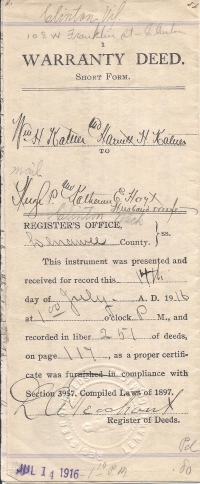 Clinton, M
108 W Franklin St - Clinton
1
WARRANTY DEED.
SHORT FORM.
Wm H. Kalner and Harriett H. Kalner
TO
mail
Hugh P. and Katherine E. Hoyt
Husband
REGISTER'S OFFICE,
Lenawee County. } ss.
This instrument was presented and
received for record this 14th
day of July A. D. 1916
at 1 o'clock P M., and
recorded in liber 251 of deeds,
on page 117, as a proper certifi-
cate was furnished in compliance with
Section 3957, Compiled Laws of 1897.
Register of Deeds.
Pd
.80
JUL 14 1916 - P.M